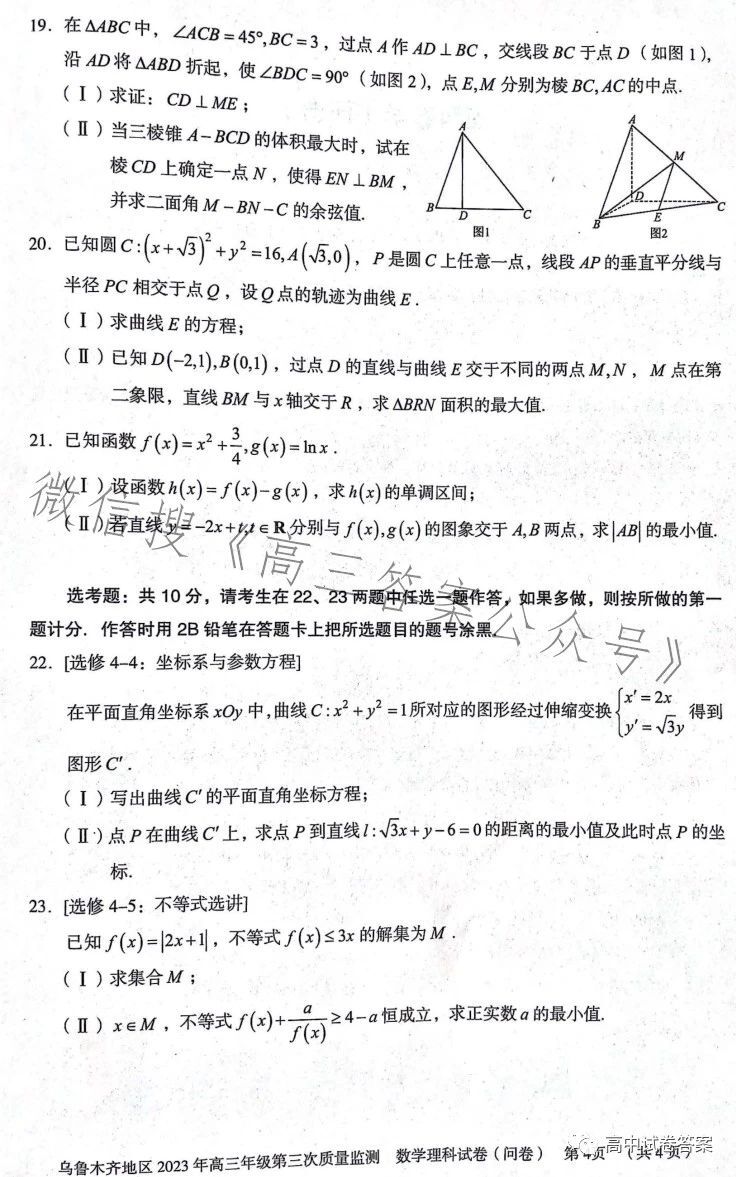 19. 在 △ABC 中，∠ACB = 45°, BC = 3，过点 A 作 AD ⊥ BC，交线段 BC 于点 D（如图 1），
沿 AD 将 △ABD 折起，使 ∠BDC = 90°（如图 2），点 E, M 分别为棱 BC, AC 的中点.
（Ⅰ）求证：CD ⊥ ME；
（Ⅱ）当三棱锥 A－BCD 的体积最大时，试在
棱 CD 上确定一点 N，使得 EN ⊥ BM，
并求二面角 M－BN－C 的余弦值.
A
B
D
C
图1
A
M
D
C
B
E
图2
20. 已知圆 C:(x+√3)²+y²=16, A(√3,0)，P 是圆 C 上任意一点，线段 AP 的垂直平分线与
半径 PC 相交于点 Q，设 Q 点的轨迹为曲线 E.
（Ⅰ）求曲线 E 的方程；
（Ⅱ）已知 D(−2,1), B(0,1)，过点 D 的直线与曲线 E 交于不同的两点 M, N，M 点在第
二象限，直线 BM 与 x 轴交于 R，求 △BRN 面积的最大值.
21. 已知函数 f(x)=x²+3/4, g(x)=ln x.
（Ⅰ）设函数 h(x)=f(x)−g(x)，求 h(x) 的单调区间；
（Ⅱ）若直线 y=−2x+t, t∈R 分别与 f(x), g(x) 的图象交于 A, B 两点，求 |AB| 的最小值.
微信搜《高三答案公众号》
选考题：共 10 分，请考生在 22、23 两题中任选一题作答，如果多做，则按所做的第一
题计分. 作答时用 2B 铅笔在答题卡上把所选题目的题号涂黑.
22. [选修 4–4：坐标系与参数方程]
在平面直角坐标系 xOy 中，曲线 C:x²+y²=1 所对应的图形经过伸缩变换 {x′=2x y′=√3y 得到
图形 C′.
（Ⅰ）写出曲线 C′ 的平面直角坐标方程；
（Ⅱ）点 P 在曲线 C′ 上，求点 P 到直线 l:√3x+y−6=0 的距离的最小值及此时点 P 的坐
标.
23. [选修 4–5：不等式选讲]
已知 f(x)=|2x+1|，不等式 f(x)≤3x 的解集为 M.
（Ⅰ）求集合 M；
（Ⅱ）x∈M，不等式 f(x)+a/f(x)≥4−a 恒成立，求正实数 a 的最小值.
高中试卷答案
乌鲁木齐地区 2023 年高三年级第三次质量监测 数学理科试卷（问卷） 第 4 页 （共 4 页）